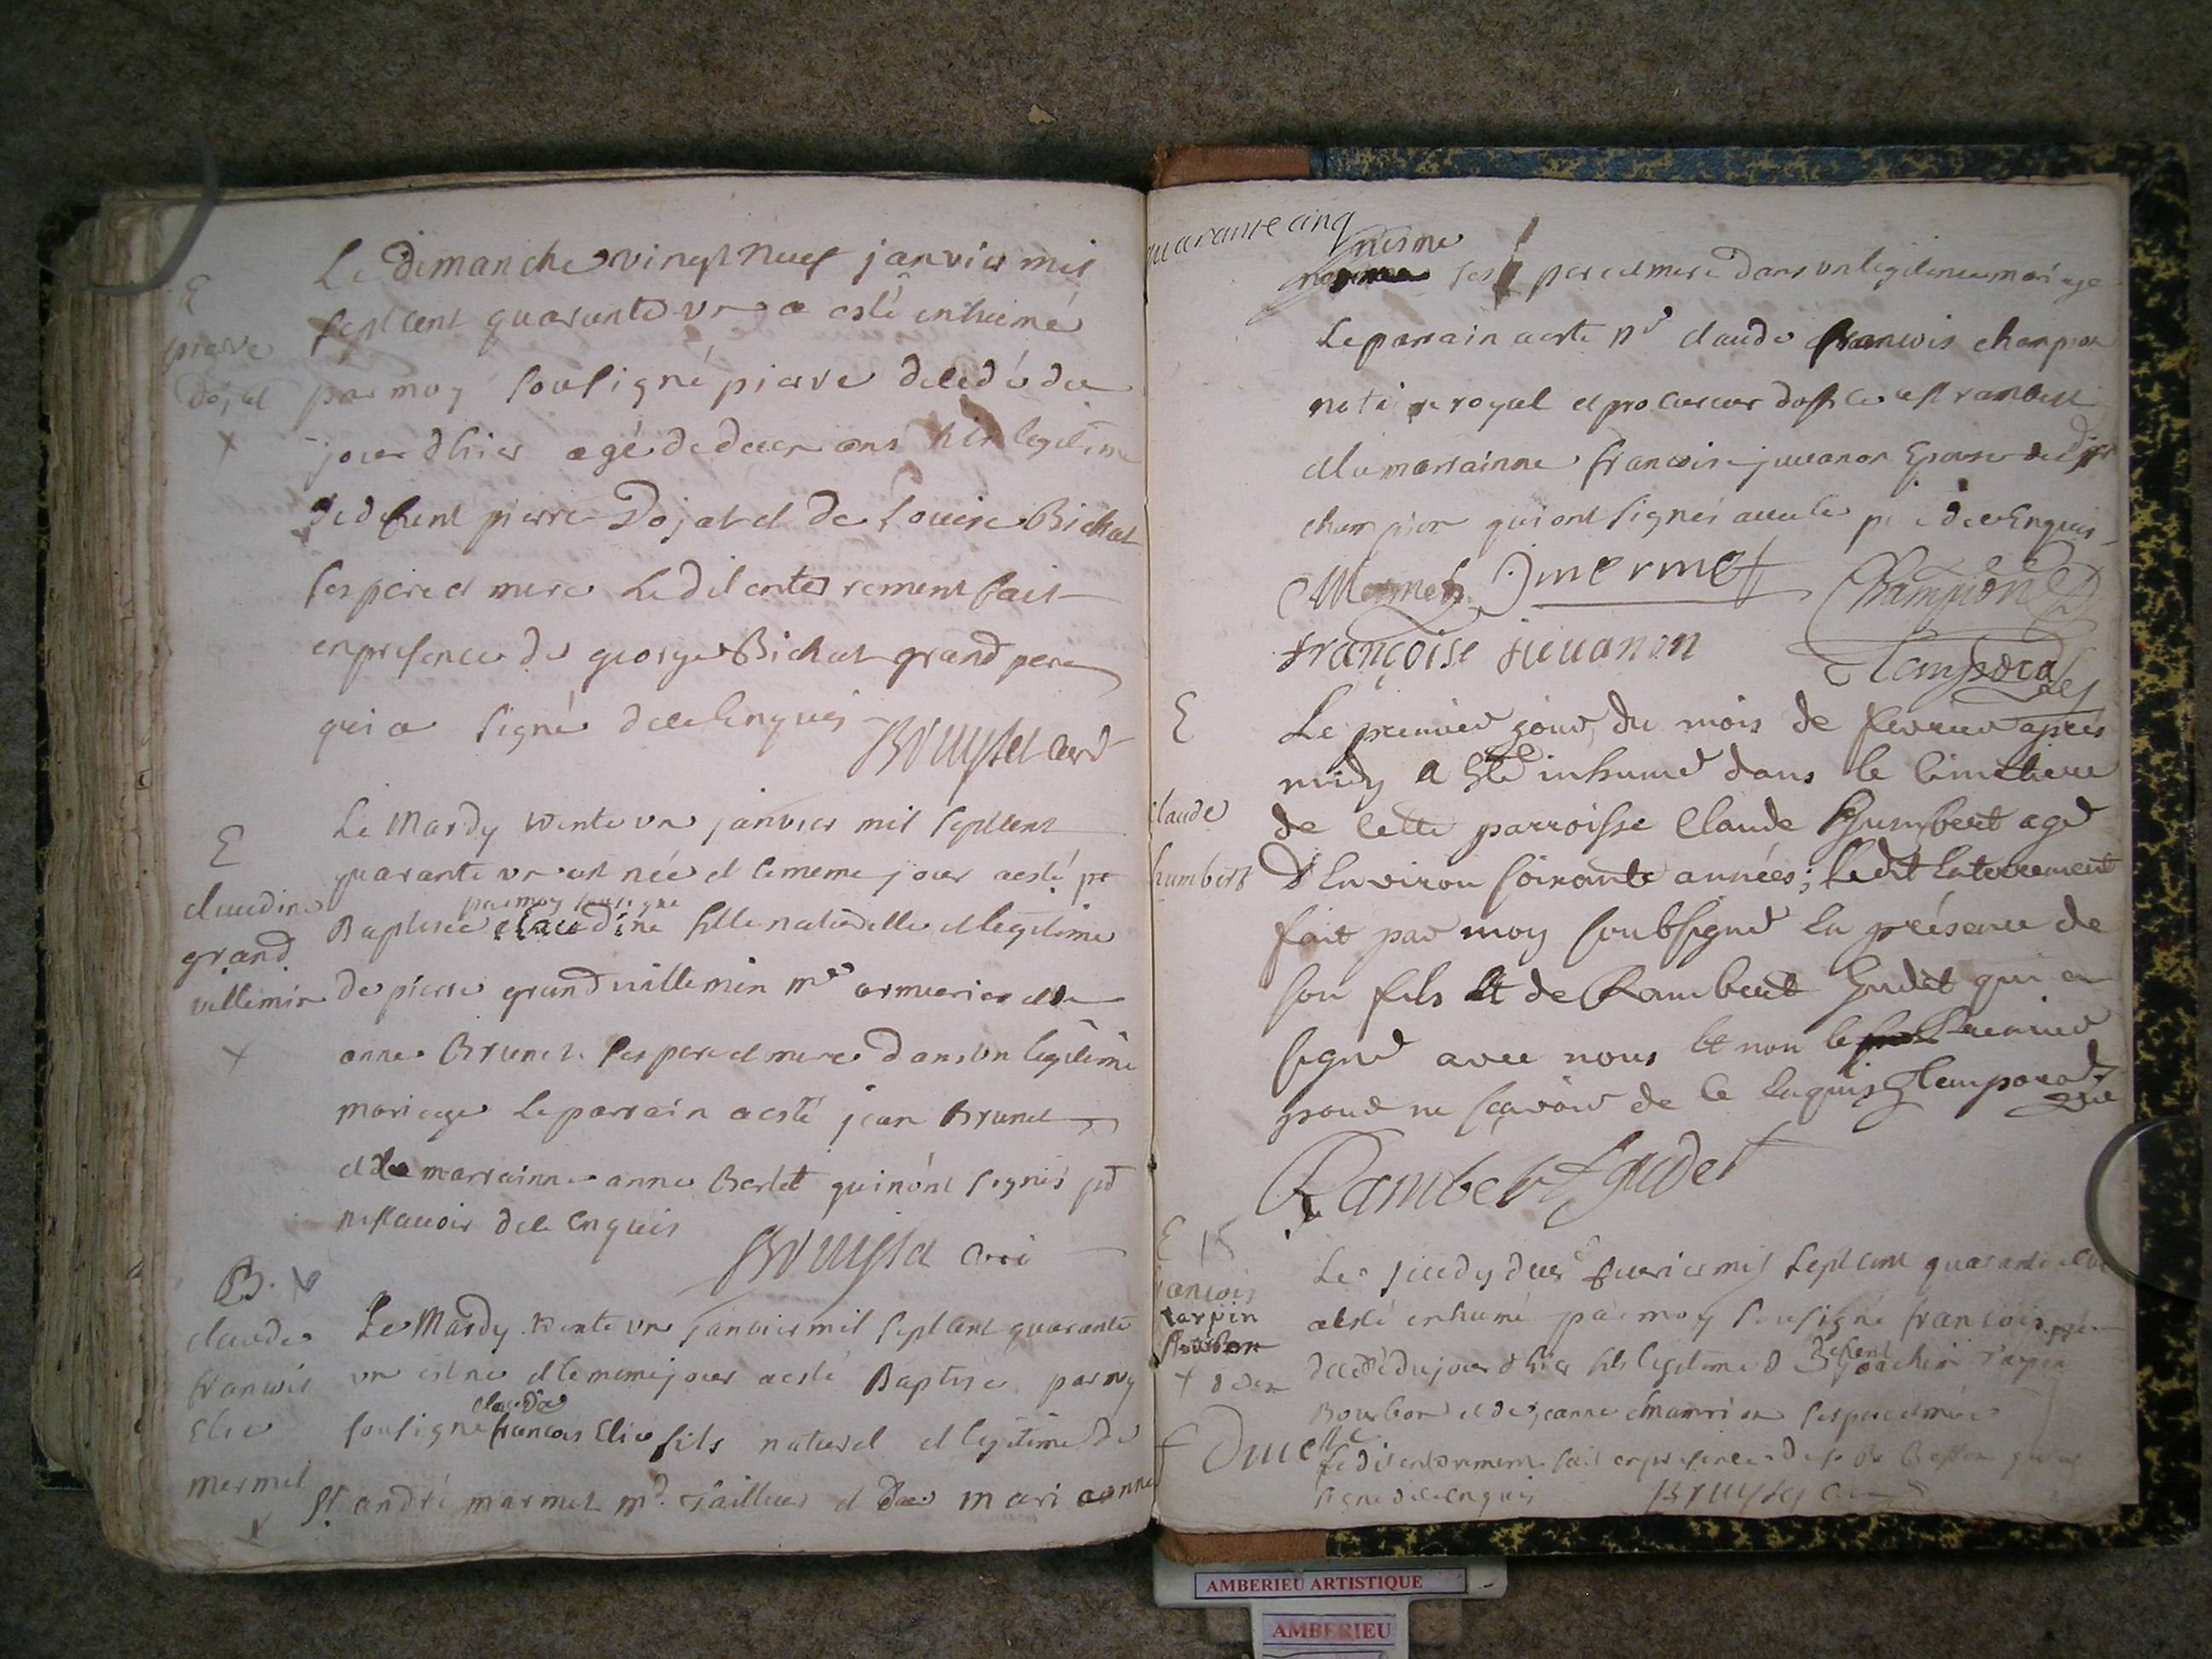 E
pierre
dojat
Le dimanche vingt neuf janvier mil
sept cent quarante un a esté inhumé
par moy sousigné pierre decedé du
jour dhier agé de deux ans fils legitime
de defunt pierre Dojat et de Louise Bichat
ses pere et mere Ledit enterrement fait
en presence de george Bichat grand pere
qui a signé de ce enquis
E
claudine
grand
villemin
Le Mardy trente un janvier mil sept cent
quarante un est née et le meme jour a esté
par moy sousigné
Baptisée claudine fille naturelle et legitime
de pierre grand villemin me armurier et de
anne Brunet ses pere et mere dans un legitime
mariage Le parrain a esté jean Brunet
et la marrainne anne Berlet qui nont signés pr
ne scavoir de ce enquis
B.
claude
francois
Elie
mermet
Le Mardy trente un janvier mil sept cent quarante
un est né et le meme jour a esté Baptisé par moy
claude
sousigné francois Elie fils naturel et legitime de
Sr andré mermet md Tailleur et de mari anne
quarante cinq
ses pere et mere dans un legitime mariage
Le parrain a esté Mr claude francois champion
notaire royal et procureur doffice a st rambert
et la marrainne francoise juvanon Epouse dudit sr
champion qui ont signés avec le pere de ce Enquis
Mermet Jmermet Champion
françoise juvanon
E
claude
humbert
Le premier jour du mois de fevrier apres
midy a Eté inhumé dans le cimetiere
de cette parroisse Claude Humbert agé
d'Environ soixante années; Ledit Enterrement
fait par moy soubsigné En présence de
son fils Et de Rambert Gudet qui a
signé avec nous Et non le premier
pour ne sçavoir de ce Enquis
Rambert gudet
E 15
francois
tarpin
bourbon
Le jeudy deux fevrier mil sept cent quarante un
a esté inhumé par moy sousigné francois
defunt
decedé du jour dhier fils legitime de joachim Tarpin
Bourbon et de jeanne ses pere et mere
Ledit enterrement fait en presence de
signé de ce enquis
AMBERIEU ARTISTIQUE
AMBERIEU